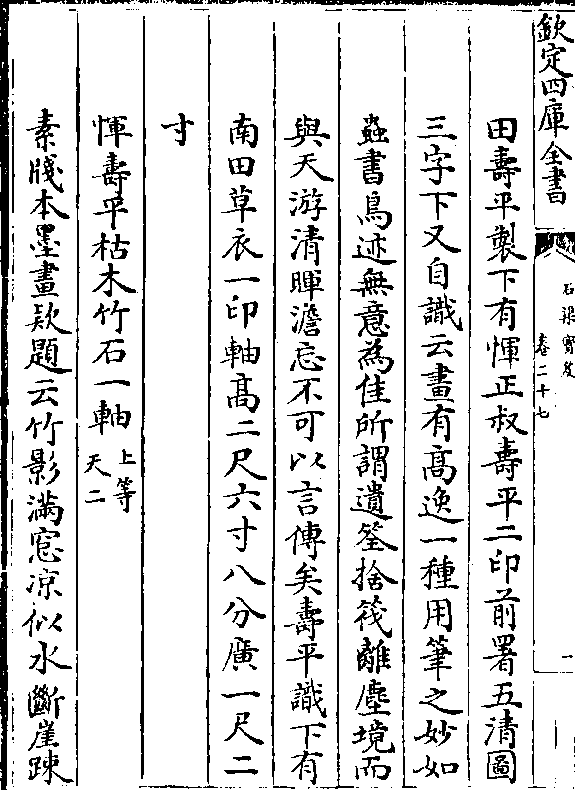 欽定四庫全書
石渠寳笈
卷二十七
一
田壽平製下有惲正叔壽平二印前署五清圖
三字下又自識云畫有髙逸一種用筆之妙如
蟲書鳥迹無意為佳所謂遺筌捨筏離塵境而
與天游清暉澹忘不可以言傳矣壽平識下有
南田草衣一印軸髙二尺六寸八分廣一尺二
寸
惲壽平枯木竹石一軸 上等天二
素牋本墨畫欵題云竹影滿窓凉似水斷崖踈